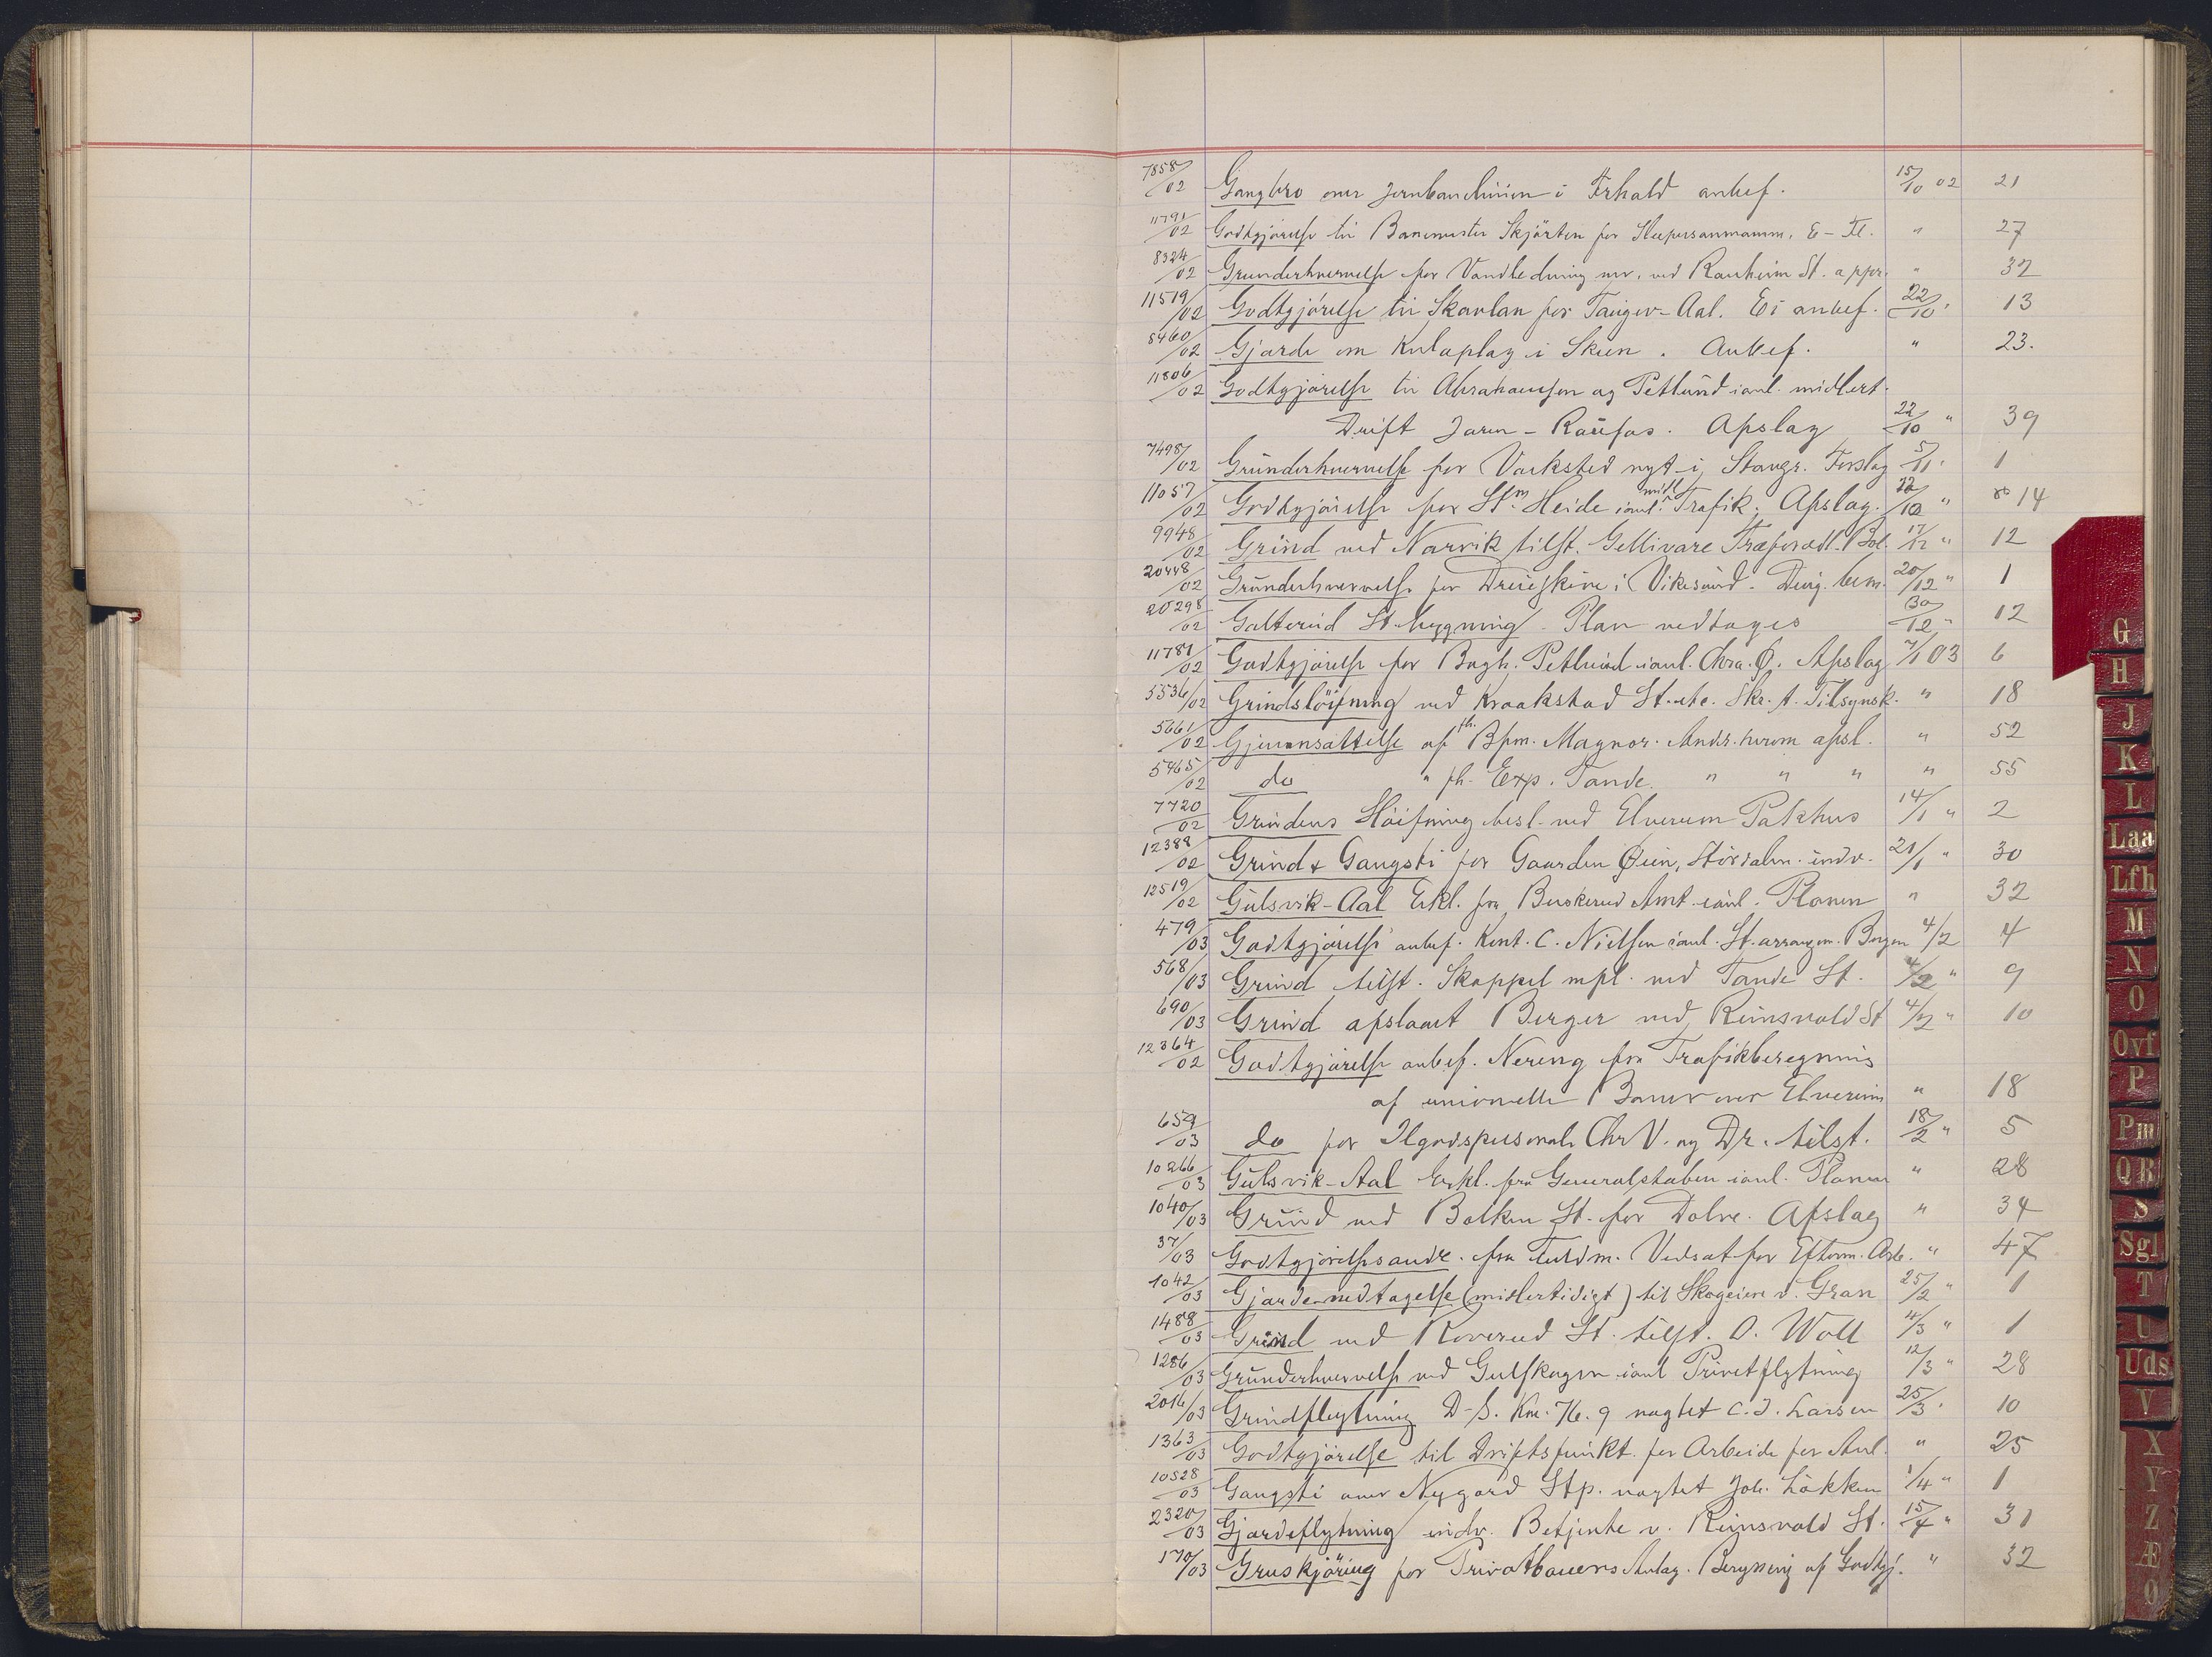 7858/02 Gangbro over Jernbanelinien i Frhald anbef. 15/10 02 21
11791/02 Godtgjørelse til Banemester Skjörten for Sleepersanmamm. E-Fl. " 27
8324/02 Grunderhvervelse for Vandledning mv. ved Ranheim St. appr. " 32
11519/02 Godtgjörelse til Skarlan for Tangev-Aal. Ei anbef. 22/10 " 13
8460/02 Gjærde om Kulaplag i Skien. Anbef. " 23.
11806/02 Godtgjörelse til Abrahamsen og Petlund i anl. midlert.
Drift Jaren-Raufos. Afslag 22/10 " 39
7498/02 Grunderhvervelse for Værksted nyt i Stavgr. Forslag 5/11 " 1
11057/02 Godtgjörelse for Stm Heide i anl. midl. Trafik. Afslag. 22/10 " 14
9948/02 Grind ved Narvik tilst. Gellivare Træforædl. Bol. 17/12 " 12
20448/02 Grunderhvervelse for Dreieskive i Vikesund. Deig. bem. 20/12 " 1
20298/02 Galterud St. bygning - Plan vedtages 30/12 " 12
11781/02 Godtgjörelse for Bogh. Petlund i anl. Chra. Ø. Afslag 7/1 03 6
5536/02 Grindslöifning ved Kraakstad St. etc. Skr. t. Tilsynsk. " 18
5661/02 Gjeninsættelse af fh. Bfm. Magnor. Andr. herom afsl. " 52
5465/02 do " fh. Exp. Tande. " " " " 55
7720/02 Grindens Slöifning besl. ved Elverum Pakhus 14/1 " 2
12388/02 Grind & Gangsti for Gaarden Øien, Stördalen. indv. 21/1 " 30
12519/02 Gulsvik-Aal Erkl. fra Buskerud Amt i anl. Planen " 32
479/03 Godtgjörelse anbef. Kont. C. Nielsen i anl. St. arrangem. Bergen 4/2 4
568/03 Grind tilst. Skappel mfl. ved Tande St. 4/2 " 9
690/03 Grind afslaaet Berger ved Reinsvold St 4/2 " 10
12364/02 Godtgjörelse anbef. Nering for Trafikberegning
af unionelle Baner over Elverum " 18
659/03 do for Ilgodspersonale Chr V. og Dr. tilst. 18/2 " 5
10266/03 Gulsvik-Aal Erkl. fra Generalstaben i anl. Planen " 28
1040/03 Grind ved Bolken St. for Dolve. Afslag " 34
37/03 Godtgjörelsesandr. fra Fuldm. Vedsat for Efterm. Arb. " 47
1042/03 Gjærdenedtagelse (midlertidigt) til Skogeiere v. Gran 25/2 " 1
1488/03 Grind ved Roverud St. tilst. O. Woll 4/3 " 1
1286/03 Grunderhvervelse ved Gulskogen i anl Privetflytning 12/3 " 28
2016/03 Grindflytning D-S. Km. 76.9 nægtet C. J. Larsen 25/3 " 10
1363/03 Godtgjörelse til Driftsfunkt. for Arbeide for Anl. " 25
10528/03 Gangsti over Nygård Stp. nægtet Joh. Lökken 1/4 " 1
2320/03 Gjærdeflytning indv. Betjente v. Reinsvold St. 15/4 " 31
170/03 Gruskjöring for Privatbaners Anlæg. Beregning af Godtgj. " 32
G
H
J
K
L
Laa
Lfh
M
N
O
Ovf
P
Pm
QR
S
Sgl
T
U
Uds
V
X
Y
Z
Æ
Ø